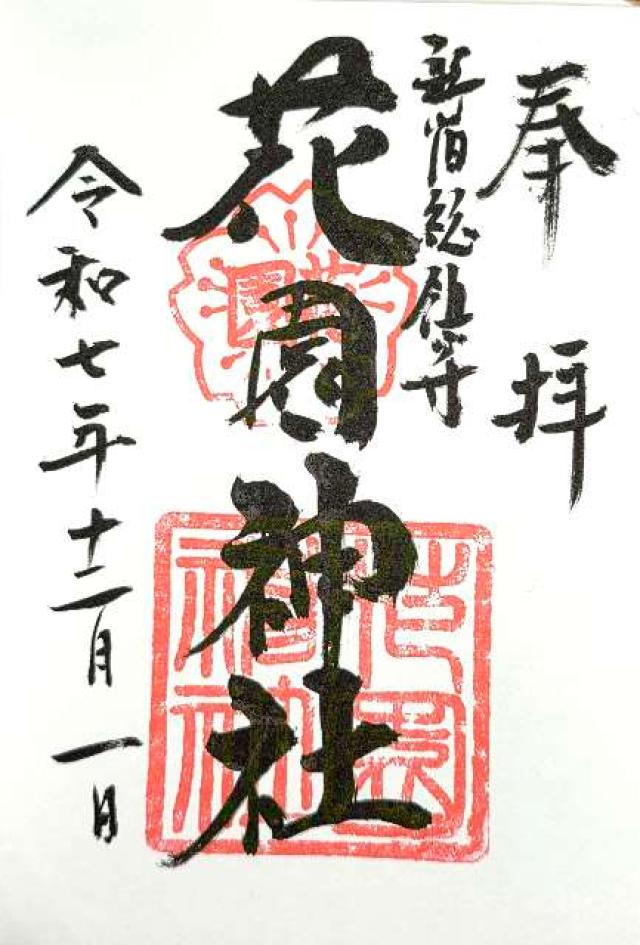 奉拝
新宿総鎮守
花園神社
令和七年十二月一日
花園
花園神社